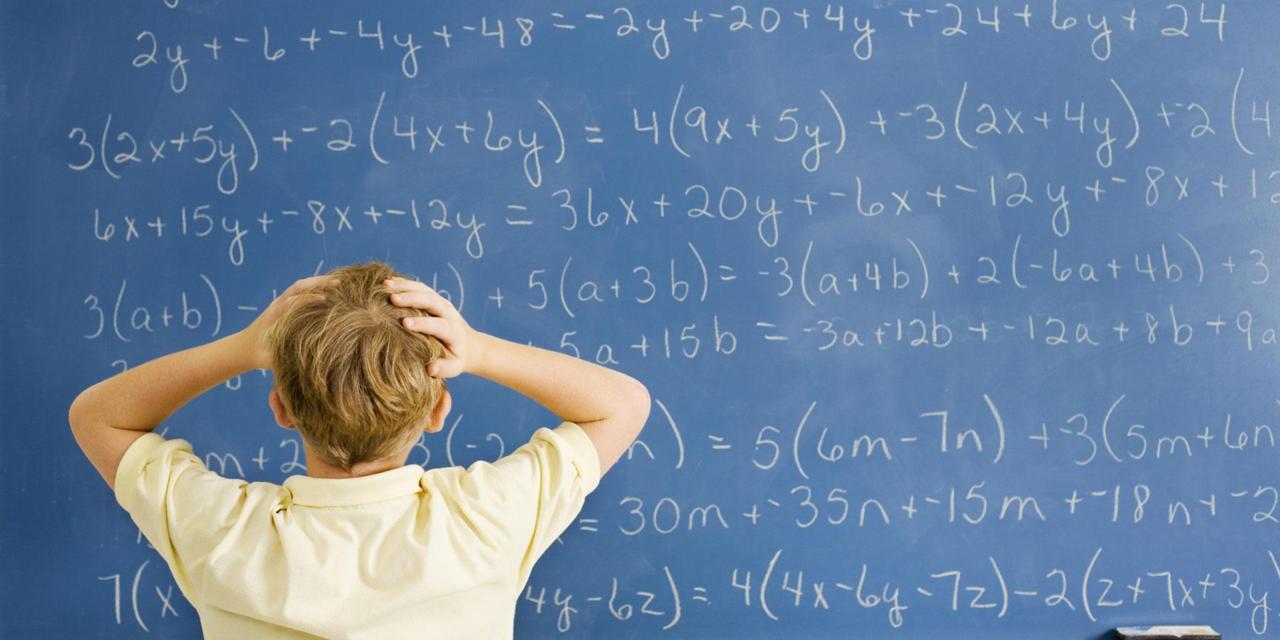 2y + ⁻6 + ⁻4y + ⁻48 = ⁻2y + ⁻20 + 4y + ⁻24 + 6y + 24
3(2x+5y) + ⁻2(4x+6y) = 4(9x+5y) + ⁻3(2x+4y) + ⁻2(4
6x + 15y + ⁻8x + ⁻12y = 36x + 20y + ⁻6x + ⁻12y + ⁻8x + 12
3(a+b) − b) + 5(a+3b) = ⁻3(a+4b) + 2(⁻6a+4b) + 3
5a + 15b = ⁻3a + ⁻12b + ⁻12a + 8b + 9a
m + 2 (⁻2 n) = 5(6m − 7n) + 3(5m + 6n
= 30m + ⁻35n + ⁻15m + ⁻18n + ⁻2
7(x 4y − 6z) = 4(4x − 6y − 7z) − 2(z + 7x + 3y)